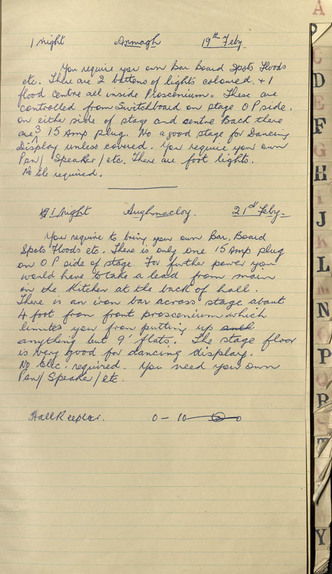 1 night Armagh 19th Feby.
You require you own Bar Board Spots Floods
etc. There are 2 battons of lights coloured + 1
flood centre all inside Proscenium. These are
controlled from Switchboard on stage O P side.
on either side of stage and centre back there
are 3 15 Amp plug. No a good stage for Dancing
Display unless covered. You require your own
Pan/ Speaker/etc. There are foot lights.
No Elc required.
1 Night Aughnacloy. 21st Feby-
You require to bring your own Bar, Board
Spots Floods etc. There is only one 15 Amp plug
on O P side of stage. For further power you
would have to take a lead from main
in the Kitchen at the back of hall.
There is an iron bar across stage about
4 foot from front proscenium which
limites you from putting up such
anything but 9' flats. The stage floor
is very good for dancing display.
No Elec. required. You need your own
Pan/ Speaker/etc
Hall Keeper. 0 - 10 - 0
A
C
D
F
G
H
I
J
K
L
M
N
O
P
R
S
T
L
Y